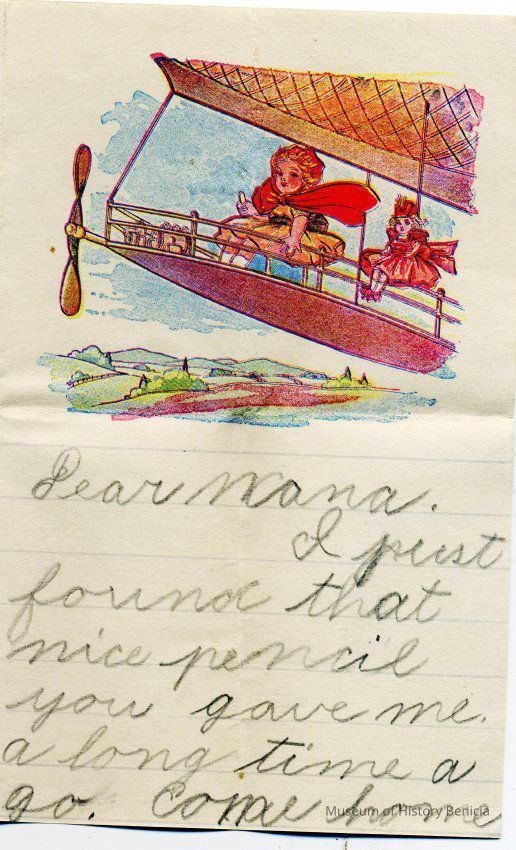 Dear Nana.
I just
found that
nice pencil
you gave me.
a long time a
go. Come home
Museum of History Benicia